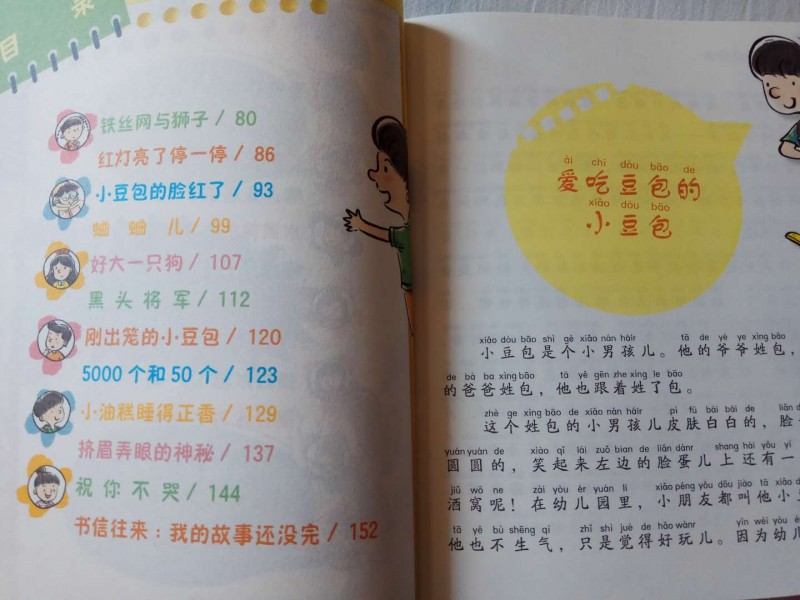 目 录
铁丝网与狮子 / 80
红灯亮了停一停 / 86
小豆包的脸红了 / 93
蛐 蛐 儿 / 99
好大一只狗 / 107
黑 头 将 军 / 112
刚出笼的小豆包 / 120
5000 个和 50 个 / 123
小油糕睡得正香 / 129
挤眉弄眼的神秘 / 137
祝 你 不 哭 / 144
书信往来：我的故事还没完 / 152
ài chī dòu bāo de
爱吃豆包的
xiǎo dòu bāo
小豆包
xiǎo dòu bāo shì gè xiǎo nán háir tā de yé ye xìng bāo
小豆包是个小男孩儿。他的爷爷姓包，
de bà ba xìng bāo tā yě gēn zhe xìng le bāo
的爸爸姓包，他也跟着姓了包。
zhè ge xìng bāo de xiǎo nán háir pí fū bái bái de liǎn d
这个姓包的小男孩儿皮肤白白的，脸
yuán yuán de xiào qǐ lái zuǒ bian de liǎn dànr shang hái yǒu yí
圆圆的，笑起来左边的脸蛋儿上还有一
jiǔ wō ne zài yòu ér yuán lǐ xiǎo péng yǒu dōu jiào tā xiǎo
酒窝呢！在幼儿园里，小朋友都叫他小
tā yě bù shēng qì zhǐ shì jué de hǎo wánr yīn wèi yòu é
他也不生气，只是觉得好玩儿。因为幼儿